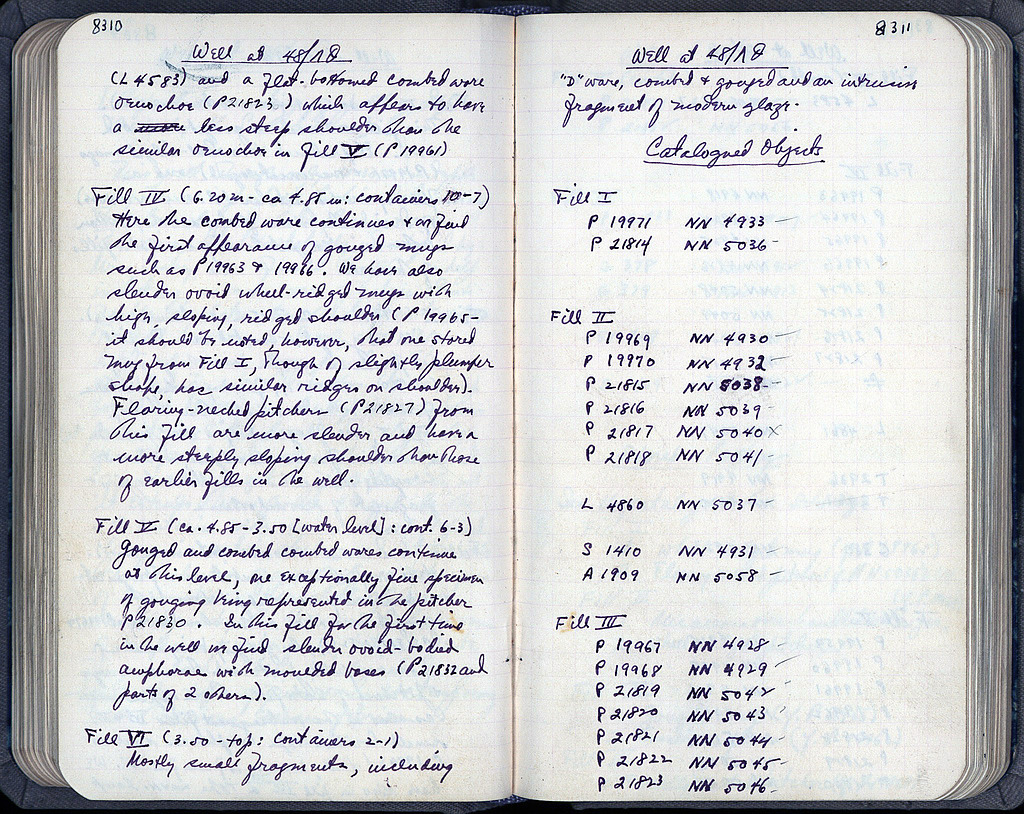 8310
Well at 48/ΛΘ
(L 4583) and a flat-bottomed combed ware
oenochoe (P21823) which appears to have
a less steep shoulder than the
similar oenochoe in fill V (P 19961)
Fill IV (6.20 m - ca 4.85 m: containers 10-7)
Here the combed ware continues & we find
the first appearance of gouged mugs
such as P19963 & 19966. We have also
slender ovoid wheel-ridged mugs with
high, sloping, ridged shoulder (P 19965-
it should be noted, however, that one stored
mug from Fill I, though of slightly plumper
shape, has similar ridges on shoulder).
Flaring-necked pitchers (P21827) from
this fill are more slender and have a
more steeply sloping shoulder than those
of earlier fills in the well.
Fill V (ca. 4.85-3.50 [water level]: cont. 6-3)
Gouged and combed combed wares continue
at this level, one exceptionally fine specimen
of gouging being represented in the pitcher
P21830. In this fill for the first time
in the well we find slender ovoid-bodied
amphorae with moulded bases (P21832 and
parts of 2 others).
Fill VI (3.50-top: containers 2-1)
Mostly small fragments, including
8311
Well at 48/ΛΘ
"D" ware, combed & gouged and an intrusive
fragment of modern glaze.
Catalogued Objects
Fill I
P 19971 NN 4933 -
P 21814 NN 5036 -
Fill II
P 19969 NN 4930 -
P 19970 NN 4932 -
P 21815 NN 5038 -
P 21816 NN 5039 -
P 21817 NN 5040 x
P 21818 NN 5041 -
L 4860 NN 5037 -
S 1410 NN 4931 -
A 1909 NN 5058 -
Fill III
P 19967 NN 4928 -
P 19968 NN 4929 -
P 21819 NN 5042 -
P 21820 NN 5043 -
P 21821 NN 5044 -
P 21822 NN 5045 -
P 21823 NN 5046 -